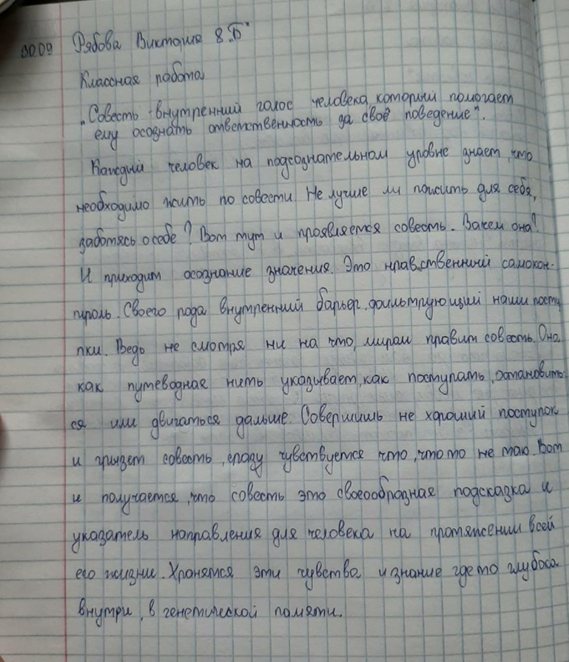 30.09 Рябова Виктория 8 "Б"
Классная работа
„Совесть - внутренний голос человека, который помогает
ему осознать ответственность за своё поведение".
Каждый человек на подсознательном уровне знает, что
необходимо жить по совести. Не лучше ли пожить для себя,
заботясь о себе? Вот тут и проявляется совесть. Зачем она?
И приходит осознание значения. Это нравственный самокон-
троль. Своего рода внутренний барьер, фильтрующий наши посту
пки. Ведь не смотря ни на что, миром правит совесть. Она
как путеводная нить указывает, как поступать, остановить-
ся или двигаться дальше. Совершишь не хороший поступок
и грызет совесть, сразу чувствуется что, что то не таю. Вот
и получается, что совесть это своеобразная подсказка и
указатель направления для человека на протяжении всей
его жизни. Хронятся эти чувства и знание где то глубоко
внутри, в генетической помяти.